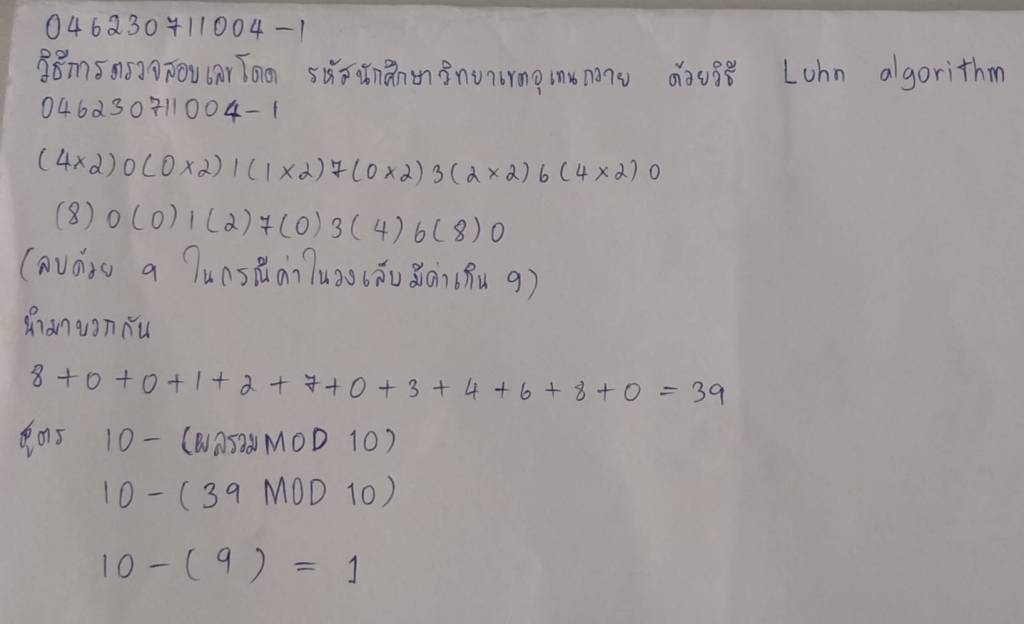 046230711004-1
วิธีการตรวจสอบเลขโดด รหัสนักศึกษาวิทยาเขตอุเทนถวาย ด้วยวิธี Luhn algorithm
046230711004-1
(4×2)0(0×2)1(1×2)7(0×2)3(2×2)6(4×2)0
(8)0(0)1(2)7(0)3(4)6(8)0
(ลบด้วย 9 ในกรณีค่าในวงเล็บมีค่าเกิน 9)
นำมาบวกกัน
8+0+0+1+2+7+0+3+4+6+8+0 = 39
สูตร 10-(ผลรวมMOD 10)
10-(39 MOD 10)
10-(9) = 1